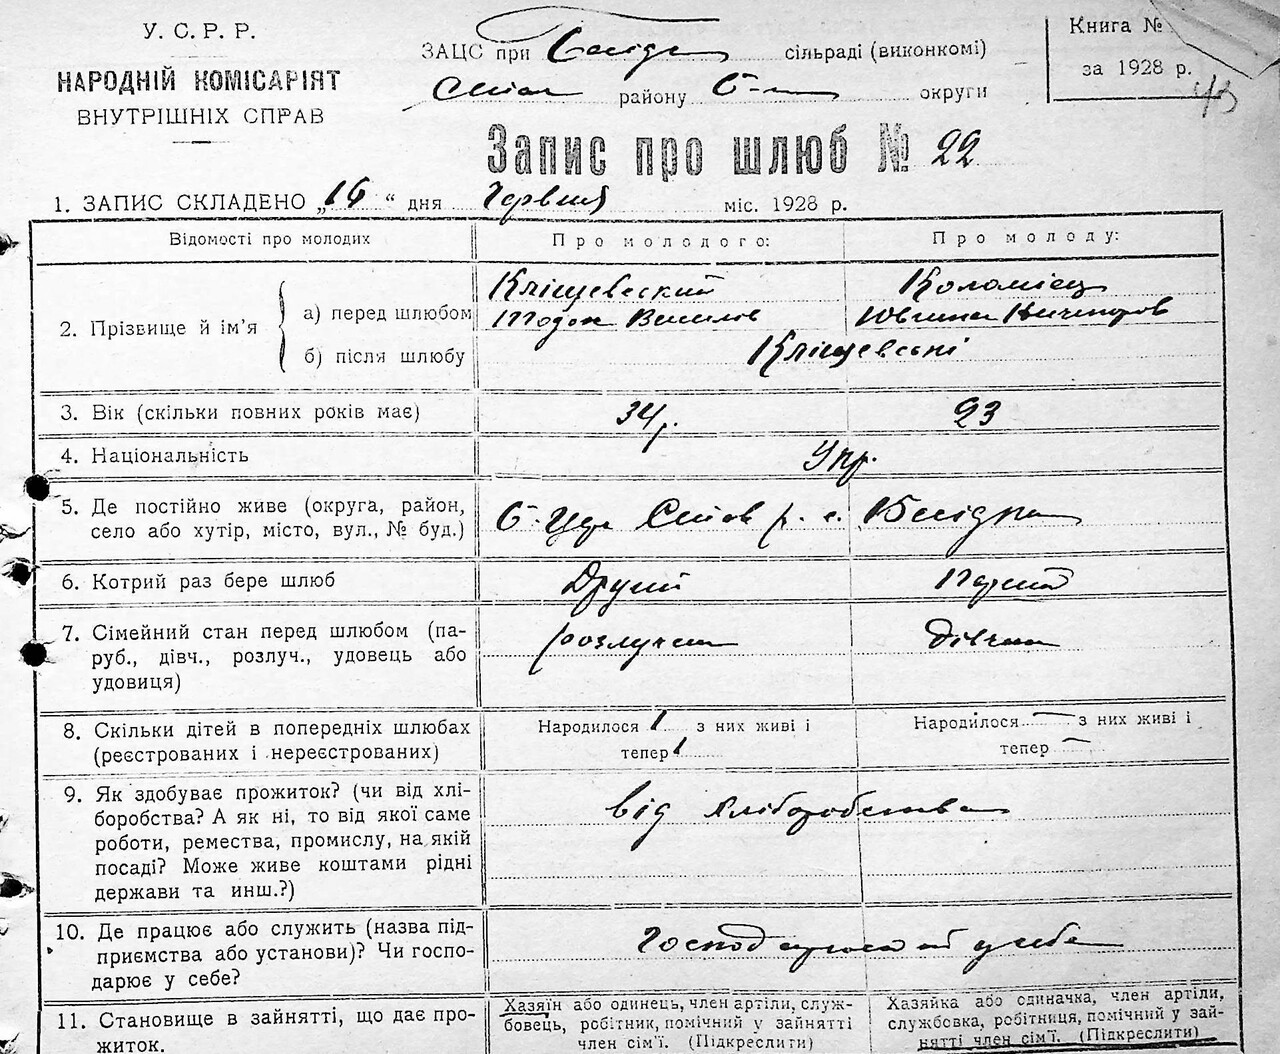 У. С. Р. Р.
НАРОДНІЙ КОМІСАРІЯТ
ВНУТРІШНІХ СПРАВ
ЗАЦС при сільраді (виконкомі)
району округи
Книга №
за 1928 р.
Запис про шлюб № 22
1. ЗАПИС СКЛАДЕНО „16“ дня Червня міс. 1928 р.
Відомості про молодих
Про молодого:
Про молоду:
2. Прізвище й ім'я
а) перед шлюбом
Кліщевский
Коломієц
Тодос Василов
б) після шлюбу
Кліщевські
3. Вік (скільки повних років має)
34 р.
23
4. Національність
Укр.
5. Де постійно живе (округа, район,
село або хутір, місто, вул., № буд.)
6. Котрий раз бере шлюб
Другий
Первий
7. Сімейний стан перед шлюбом (па-
руб., дівч., розлуч., удовець або
удовиця)
розлучен
дівчина
8. Скільки дітей в попередніх шлюбах
(реєстрованих і нереєстрованих)
Народилося 1 з них живі і
тепер 1
Народилося — з них живі і
тепер —
9. Як здобуває прожиток? (чи від хлі-
боробства? А як ні, то від якої саме
роботи, ремества, промислу, на якій
посаді? Може живе коштами рідні
держави та инш.?)
від хліборобства
10. Де працює або служить (назва під-
приємства або установи)? Чи госпо-
дарює у себе?
у себе
11. Становище в зайнятті, що дає про-
житок.
Хазяїн або одинець, член артіли, служ-
бовець, робітник, помічний у зайнятті
член сім'ї. (Підкреслити)
Хазяйка або одиначка, член артіли,
службовка, робітниця, помічний у зай-
нятті член сім'ї. (Підкреслити)